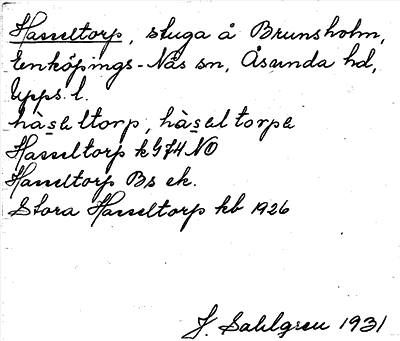 Hasseltorp, stuga å Brunsholm,
Enköpings-Näs sn, Åsunda hd,
Upps. l.
hàsəltorp, hàsəltorpə
Hasseltorp k G74 NO
Hasseltorp Bs ek.
Stora Hasseltorp kb 1926
J. Sahlgren 1931